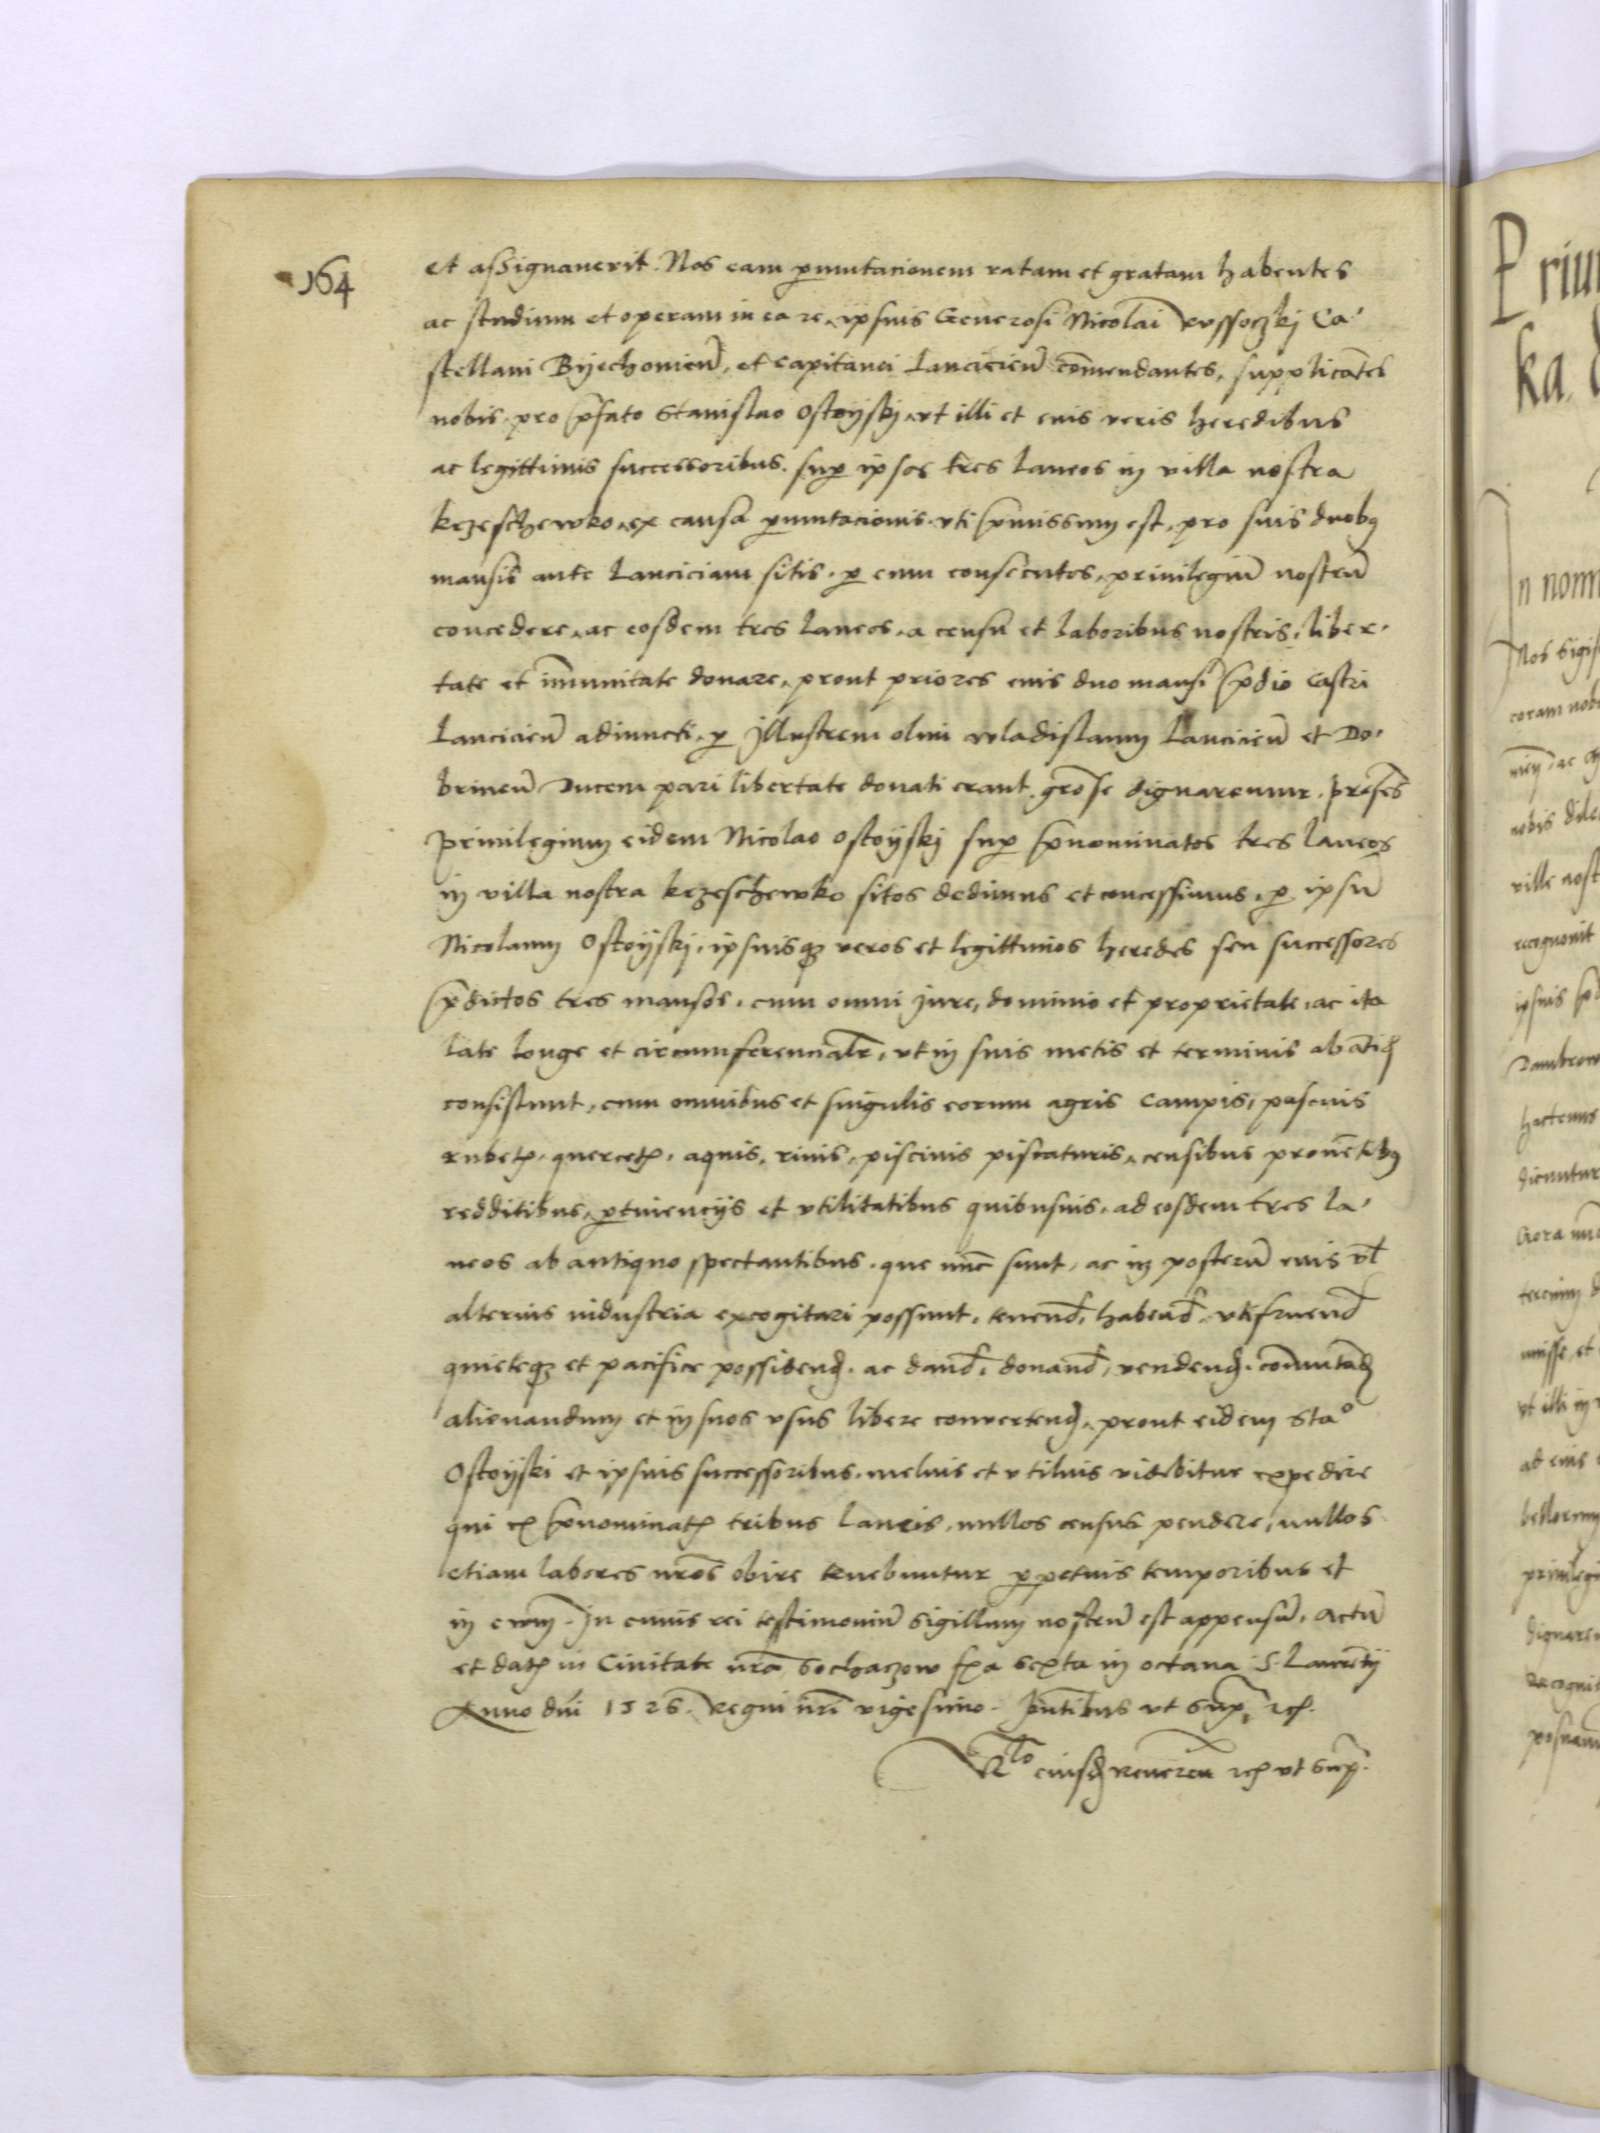 164
et assignauerit. Nos eam p̱mutacionem ratam et gratam habentes
ac studium et operam in ea re, ipsius Generosi Nicolai Russoczkj Ca-
stellani Byechouień, et Capitanei Lancicień com̄endantes, supplicātes
nobis, pro p̄fato Stanislao Ostoyskj, vt illi et eius veris heredibus
ac legittimis successoribus. sup̱ ipsos tres laneos in villa nostra
krzeschewko, ex causa p̱mutacionis vti p̄missum est, pro suis duobꝯ
mansis ante Lanciciam sitis, p̱ eum consecutos, priuilegiū nostrū
concedere, ac eosdem tres laneos, a censu et laboribus nostris, liber-
tate et im̄unitate donare, prout priores eius duo mansi p̄dio Castri
Lancicień adiuncti, p̱ Illustrem olim wladislaum Lancicień et Do-
brineń Ducem pari libertate donati erant. gr̄ose dignaremur. pr̄fes
priuilegium eidem Nicolao Ostoyskj sup̱ p̄nominatos tres laneos
in villa nostra krzeschewko sitos dedimus et concessimus, p̱ ipsū
Nicolaum Ostoyskj, ipsiusqꝫ veros et legittimos heredes seu successores
p̄dictos tres mansos, cum omni jure, dominio et proprietate, ac ita
late longe et circumferencialr̄, vt in suis metis et terminis ab āti
consistunt, cum omnibus et singulis eorum agris campis, pascuis
rubetꝭ, quercetꝭ, aquis, riuis, piscinis piscaturis, censibus prouētibꝯ
redditibus, p̱tinencijs et vtilitatibus quibusuis, ad eosdem tres la-
neos ab antiquo spectantibus, que nūc sunt, ac in posterū eius vl̄
alterius industria excogitari possunt, tenend̄, habend̄, vtifruend̄
quieteqꝫ et pacifice possidend̄, ac dand̄, donand̄, vendend̄, com̄utād̄
alienandum et in suos vsus libere conuertend̄, prout eidem Stao
Ostoyski et ipsius successoribus, melius et vtilius videbitur expedire
qui ex p̄nominatꝭ tribus laneis, nullos census pendere, nullos
etiam labores nr̄os obire tenebuntur p̱petuis temporibus et
in ewm̄. In cuius rei testimoniū Sigillum nostrū est appensū, Actū
et datꝭ in Ciuitate nr̄a Sochaczow fr̄a sexta in octaua S. Laurētij
Anno dnī 1526. Regni nr̄i vigesimo. p̄ntibus vt sup̄, rcꝭ.
Rlo eiusd̄ Reueren rcꝭ vt sup̄.